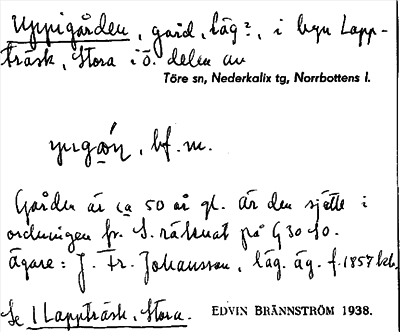 Uppigården, gård, läg?, i byn Lapp-
träsk, Stora i ö. delen av
Töre sn, Nederkalix tg, Norrbottens l.
bf. m.
Gården är ca 50 år gl. Är den sjätte i
ordningen fr. S. räknat på G 30 So.
Ägare: J. Fr. Johansson, läg. äg. f. 1857 kb.
Se 1 Lappträsk, Stora. EDVIN BRÄNNSTRÖM 1938.